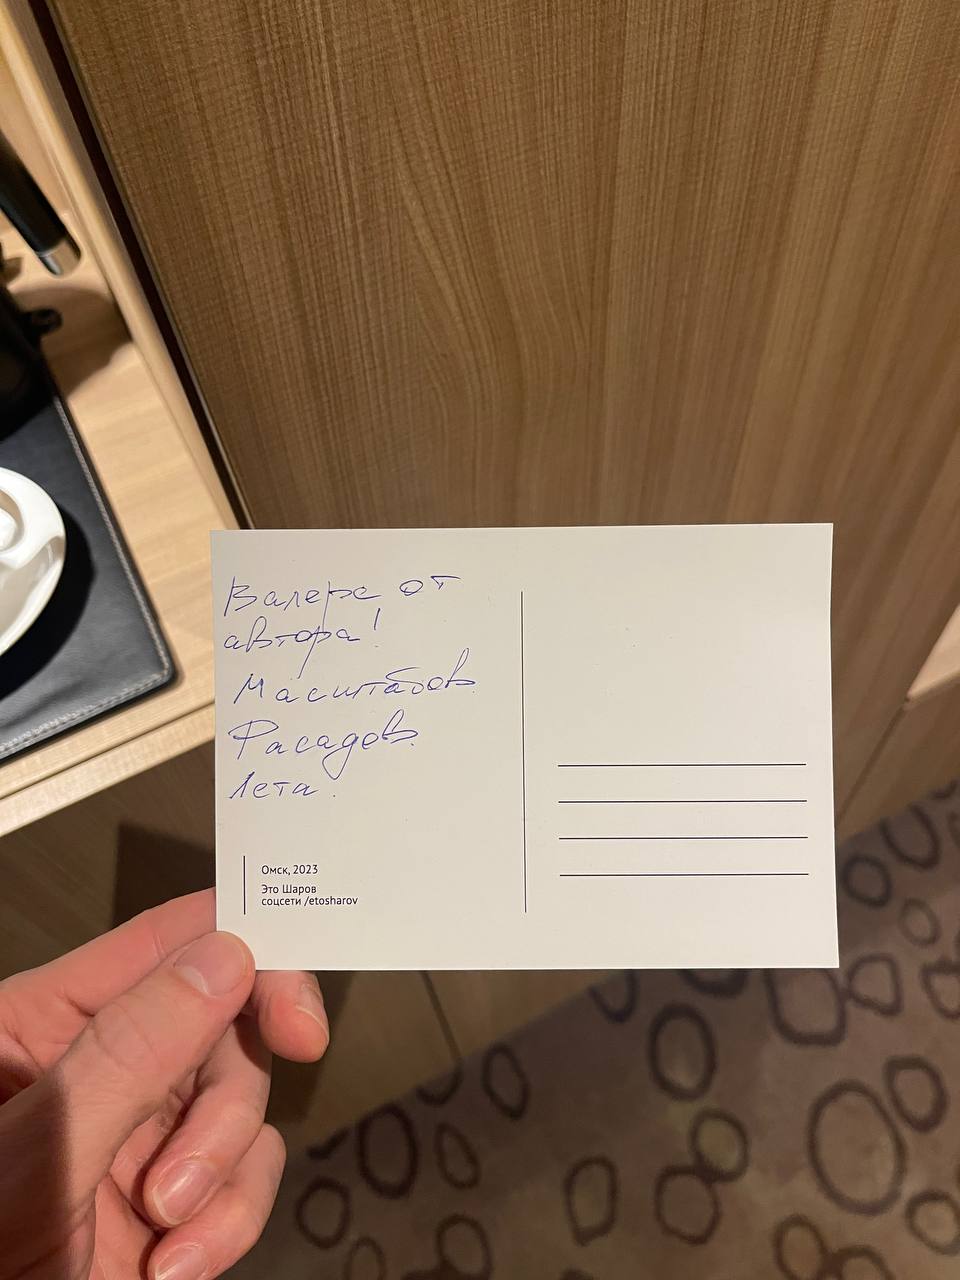 Валере от
автора!
Масштабов.
Фасадов.
Лета.
Омск, 2023
Это Шаров
соцсети /etosharov